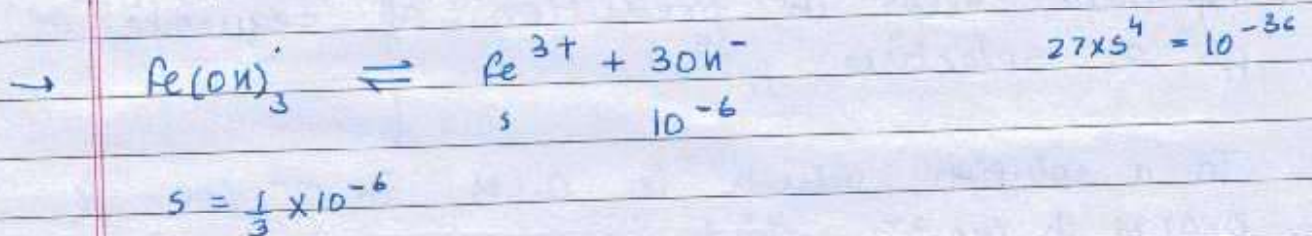 → fe(OH)₃ ⇌ fe³⁺ + 3OH⁻ 27×s⁴ = 10⁻³⁶
s 10⁻⁶
s = 1/3 × 10⁻⁶